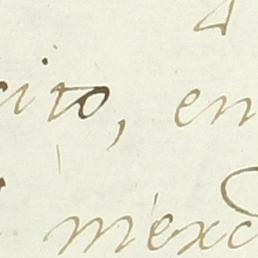 cito, en
mexc